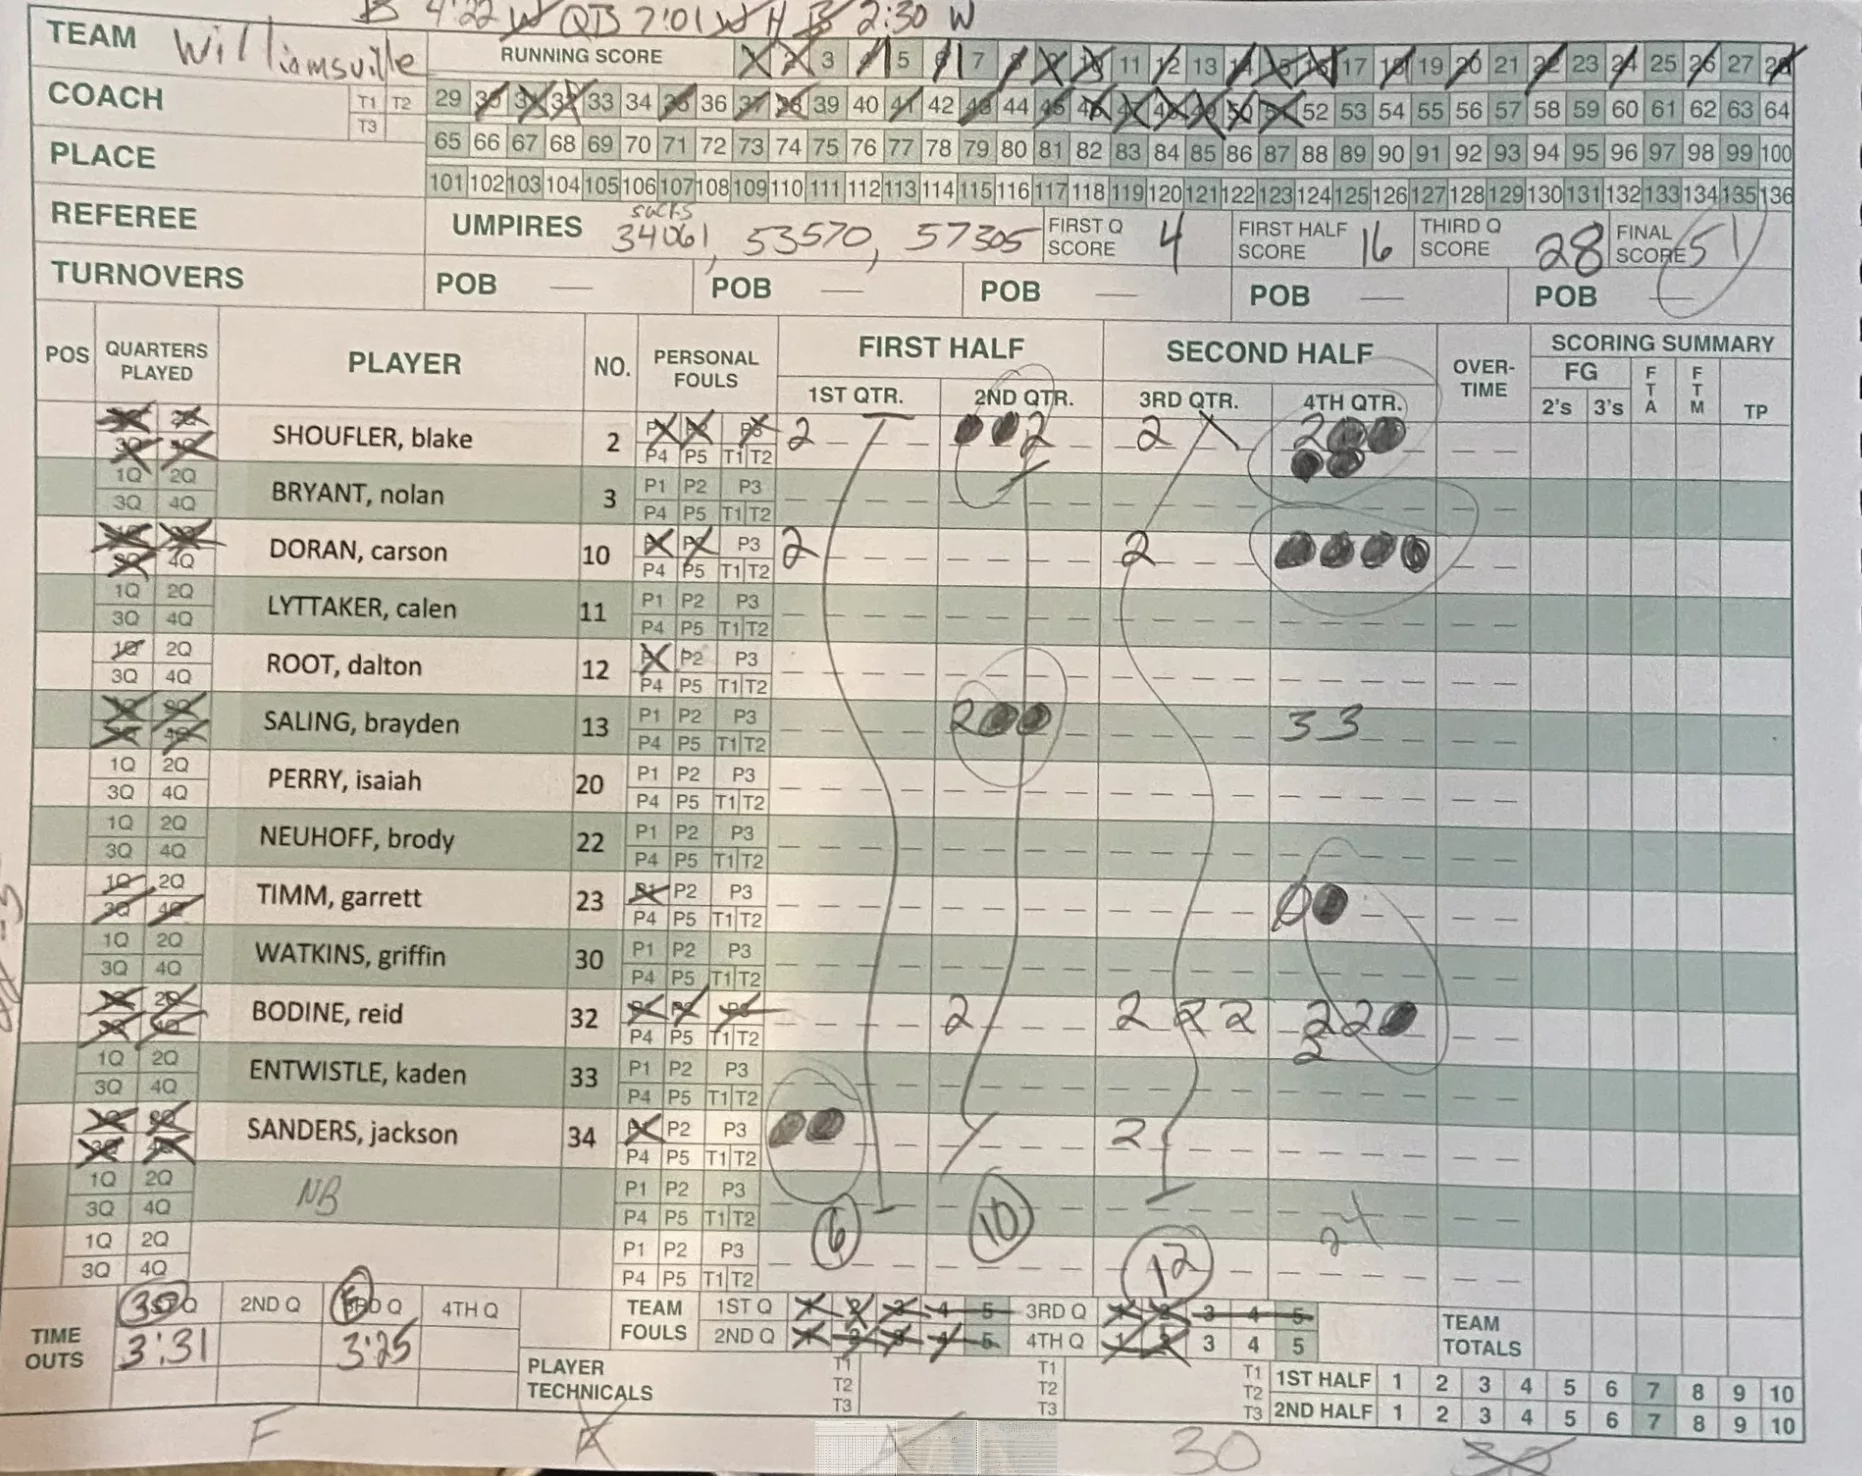 B 4:22 W QB 7:01 W H B 2:30 W
TEAM Williamsville
RUNNING SCORE 1 2 3 4 5 6 7 8 9 10 11 12 13 14 15 16 17 18 19 20 21 22 23 24 25 26 27 28
COACH T1 T2 T3
29 30 31 32 33 34 35 36 37 38 39 40 41 42 43 44 45 46 47 48 49 50 51 52 53 54 55 56 57 58 59 60 61 62 63 64
PLACE
65 66 67 68 69 70 71 72 73 74 75 76 77 78 79 80 81 82 83 84 85 86 87 88 89 90 91 92 93 94 95 96 97 98 99 100
101 102 103 104 105 106 107 108 109 110 111 112 113 114 115 116 117 118 119 120 121 122 123 124 125 126 127 128 129 130 131 132 133 134 135 136
REFEREE
sucks
UMPIRES 34061, 53570, 57305 FIRST Q SCORE 4 FIRST HALF SCORE 16 THIRD Q SCORE 28 FINAL SCORE 51
TURNOVERS POB — POB — POB — POB — POB —
POS QUARTERS PLAYED PLAYER NO. PERSONAL FOULS FIRST HALF SECOND HALF OVER-TIME SCORING SUMMARY
1ST QTR. 2ND QTR. 3RD QTR. 4TH QTR. FG 2's 3's FTA FTM TP
1Q 2Q 3Q 4Q SHOUFLER, blake 2 P1 P2 P3 P4 P5 T1 T2 2 2 2 2
1Q 2Q 3Q 4Q BRYANT, nolan 3 P1 P2 P3 P4 P5 T1 T2
1Q 2Q 3Q 4Q DORAN, carson 10 P1 P2 P3 P4 P5 T1 T2 2 2
1Q 2Q 3Q 4Q LYTTAKER, calen 11 P1 P2 P3 P4 P5 T1 T2
1Q 2Q 3Q 4Q ROOT, dalton 12 P1 P2 P3 P4 P5 T1 T2
1Q 2Q 3Q 4Q SALING, brayden 13 P1 P2 P3 P4 P5 T1 T2 2 3 3
1Q 2Q 3Q 4Q PERRY, isaiah 20 P1 P2 P3 P4 P5 T1 T2
1Q 2Q 3Q 4Q NEUHOFF, brody 22 P1 P2 P3 P4 P5 T1 T2
1Q 2Q 3Q 4Q TIMM, garrett 23 P1 P2 P3 P4 P5 T1 T2
1Q 2Q 3Q 4Q WATKINS, griffin 30 P1 P2 P3 P4 P5 T1 T2
1Q 2Q 3Q 4Q BODINE, reid 32 P1 P2 P3 P4 P5 T1 T2 2 2 2 2 2 2 2
1Q 2Q 3Q 4Q ENTWISTLE, kaden 33 P1 P2 P3 P4 P5 T1 T2
1Q 2Q 3Q 4Q SANDERS, jackson 34 P1 P2 P3 P4 P5 T1 T2 2
1Q 2Q 3Q 4Q NB P1 P2 P3 P4 P5 T1 T2
1Q 2Q 3Q 4Q P1 P2 P3 P4 P5 T1 T2 6 10 12 24
TIME OUTS 30 1ST Q 2ND Q F 3RD Q 4TH Q
3:31 3:25
TEAM FOULS 1ST Q 1 2 3 4 5 3RD Q 1 2 3 4 5
2ND Q 1 2 3 4 5 4TH Q 1 2 3 4 5
TEAM TOTALS
PLAYER TECHNICALS T1 T2 T3 T1 T2 T3 T1 T2 T3
1ST HALF 1 2 3 4 5 6 7 8 9 10
2ND HALF 1 2 3 4 5 6 7 8 9 10
F 30 30